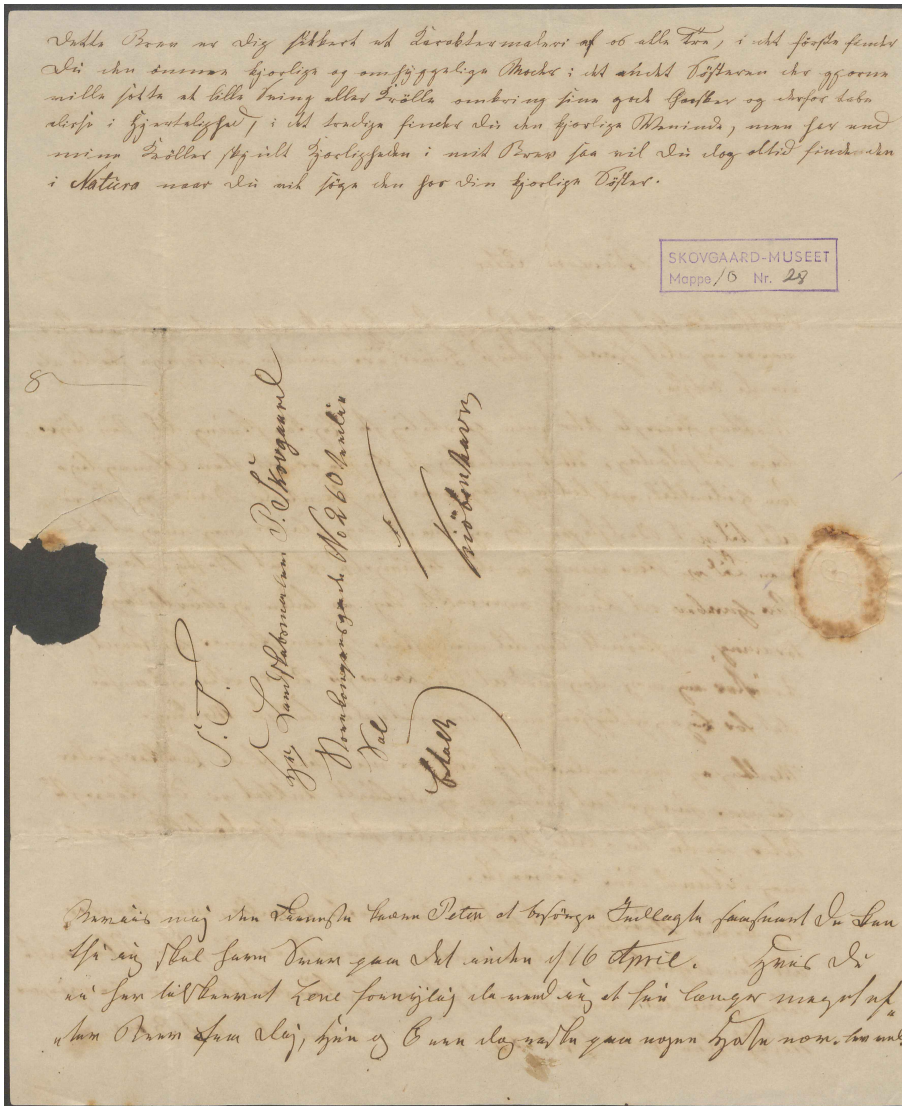 Dette Brev er Dig sikkert et Karaktermaleri af os alle Tre, i det første finder
Du den ømme kjærlige og omhyggelige Moder i det andet Søsteren der gjerne
ville sætte et lille Sving eller Krølle omkring sine gode Ønsker og derfor tabe
disse i Hjertelighed, i det tredige finder Du den kjærlige Veninde, men har end
mine Krøller skjult Kjærligheden i mit Brev saa vil Du dog altid finde den
i Natura naar Du vil søge den hos Din kjærlige Søster.
SKOVGAARD-MUSEET
Mappe 10 Nr. 28
8
S. T.
Hr Landskabsmaler P. Skovgaard
Storekongensgade No 260
Sal
Kiöbenhavn
Beviis mig den Tieneste kiære Peter at besørge Indlagte saasnart Du kan
thi jeg skal have Svar paa Det inden d 16 April. Hvis Du
ei har tilskrevet Lene formylig da veed jeg at hun længes meget ef-
ter Brev fra Dig, Hun og C ere dog raske paa nogen Hoste nær.